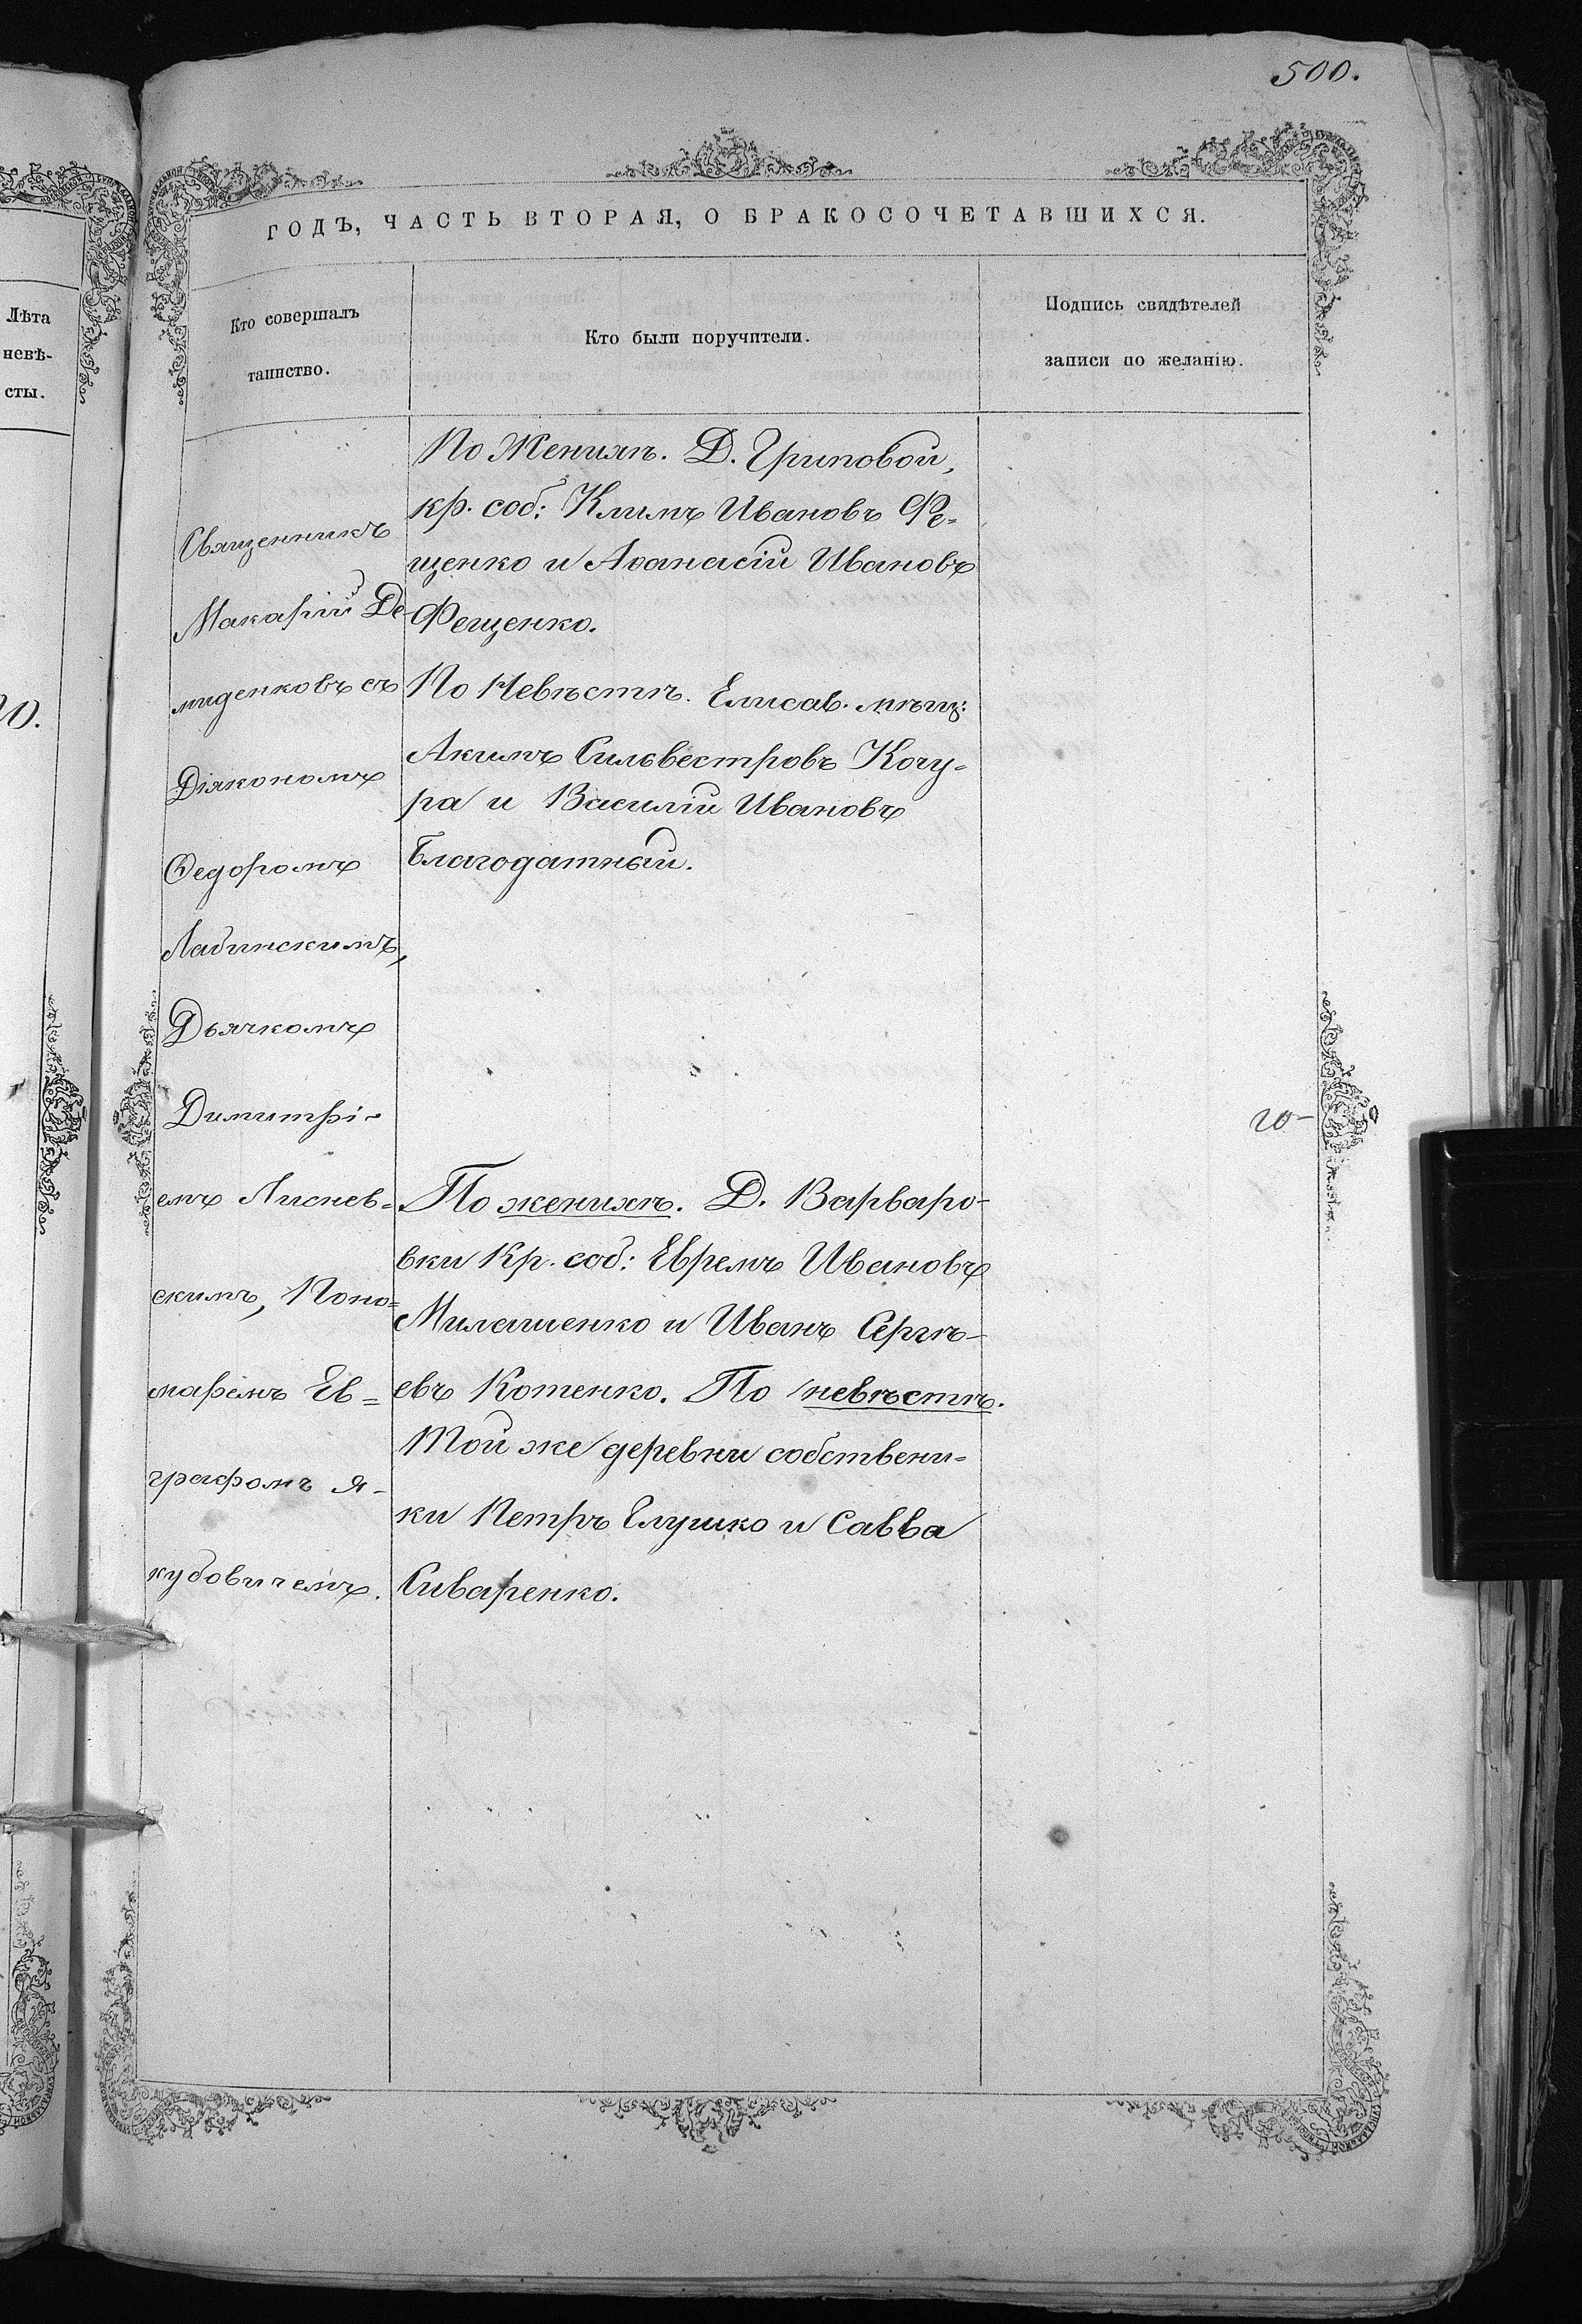 500.
ГОДЪ, ЧАСТЬ ВТОРАЯ, О БРАКОСОЧЕТАВШИХСЯ.
Лѣта
невѣ-
сты.
Кто совершалъ
таинство.
Кто были поручители.
Подпись свидѣтелей
записи по желанію.
Священникъ
Макарій Де-
миденковъ съ
Діякономъ
Ѳедоромъ
Лабинскимъ,
Дьячкомъ
Димитрі-
емъ Лиснев=
скимъ, Поно=
маремъ Ев=
графомъ Я-
кубовичемъ.
По Женихѣ. Д. Гриповой,
кр. соб: Климъ Ивановъ Фе-
щенко и Аѳанасій Ивановъ
Фещенко.
По Невѣстѣ. Елисав. мѣщ:
Акимъ Сильвестровъ Кочу-
ра и Василій Ивановъ
Благодатный.
По женихѣ. Д. Варваро-
вки Кр. соб: Ефремъ Ивановъ
Милашенко и Иванъ Сергѣ-
евъ Котенко. По невѣстѣ.
Той же деревни собствени-
ки Петръ Глушко и Савва
Сиваренко.
20-